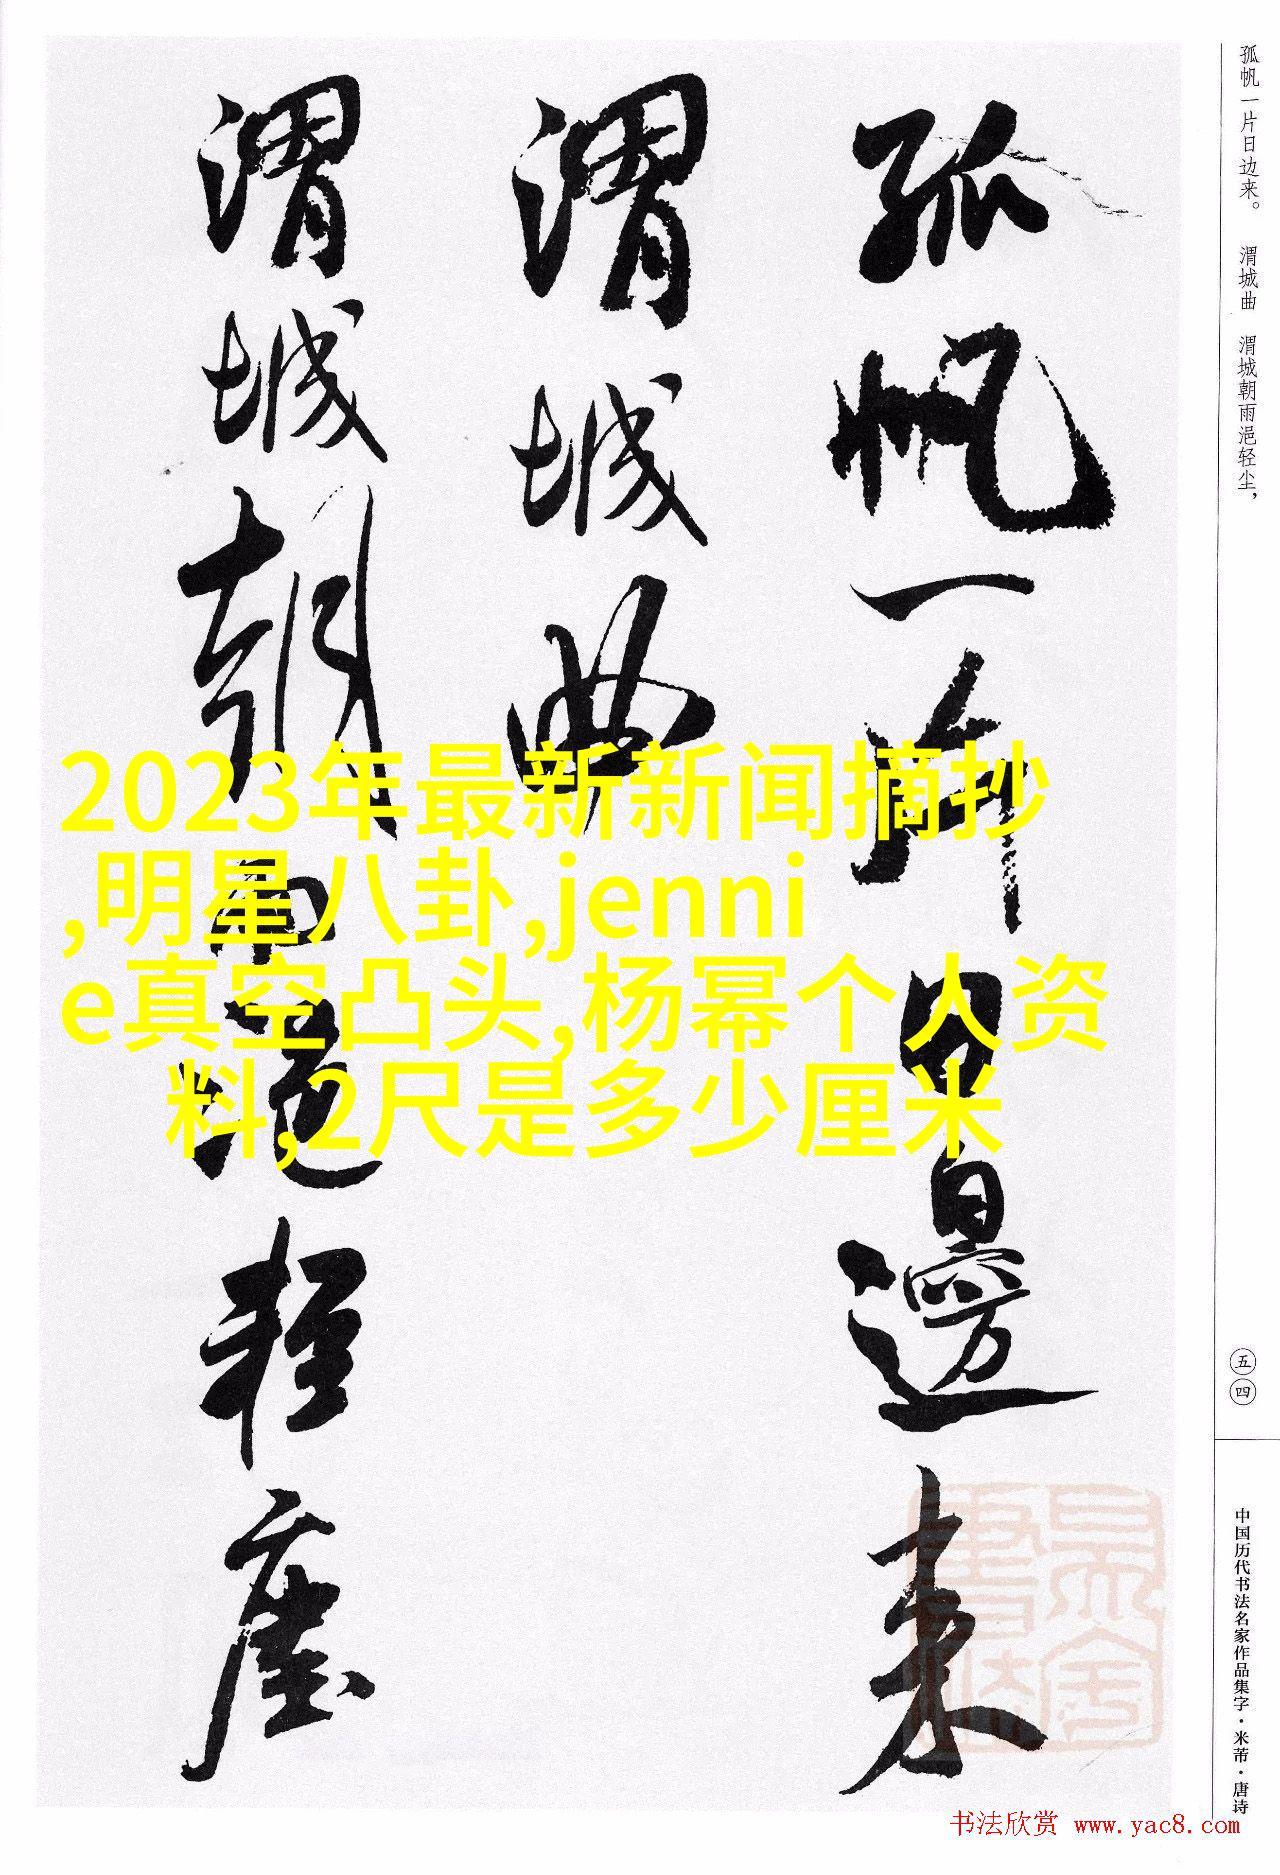 孤帆一片日边来。 渭城曲 渭城朝雨浥轻尘，
孤帆一片日邊来
渭城曲
渭城朝雨浥轻塵
2023年最新新闻摘抄
,明星八卦,jenni
e真空凸头,杨幂个人资
料,2尺是多少厘米
五四
中国历代书法名家作品集字·米芾·唐诗
书法欣赏 www.yac8.com